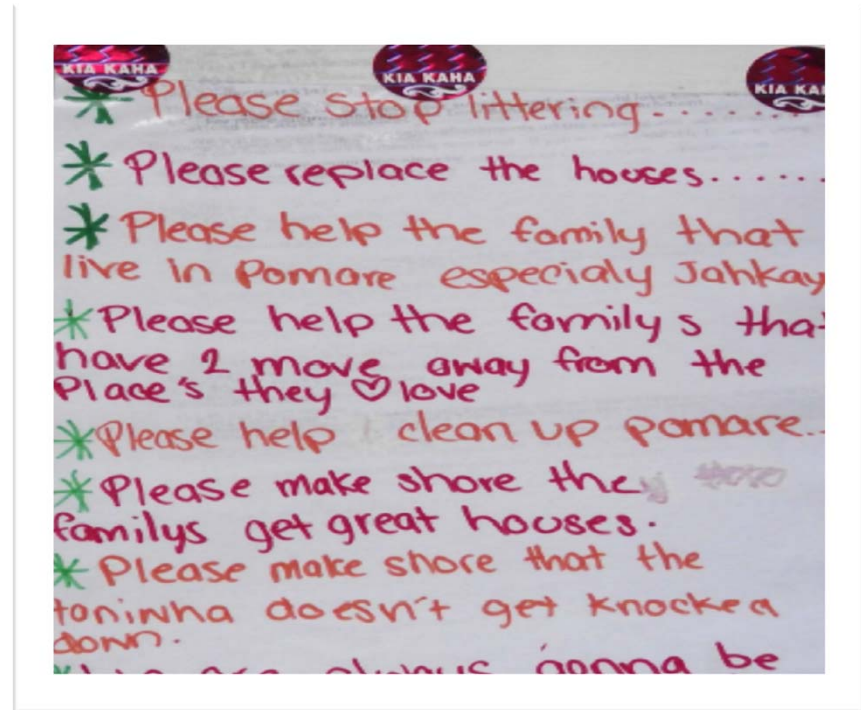 KIA KAHA KIA KAHA KIA KA
* Please stop littering.......
* Please replace the houses......
* Please help the family that
live in Pomare especialy Jahkay
* Please help the family s tha
have 2 move away from the
Place's they ♡ love
* Please help clean up pomare..
* Please make shore the
familys get great houses.
* Please make shore that the
toninwha doesn't get knocked
down.
always gonna be